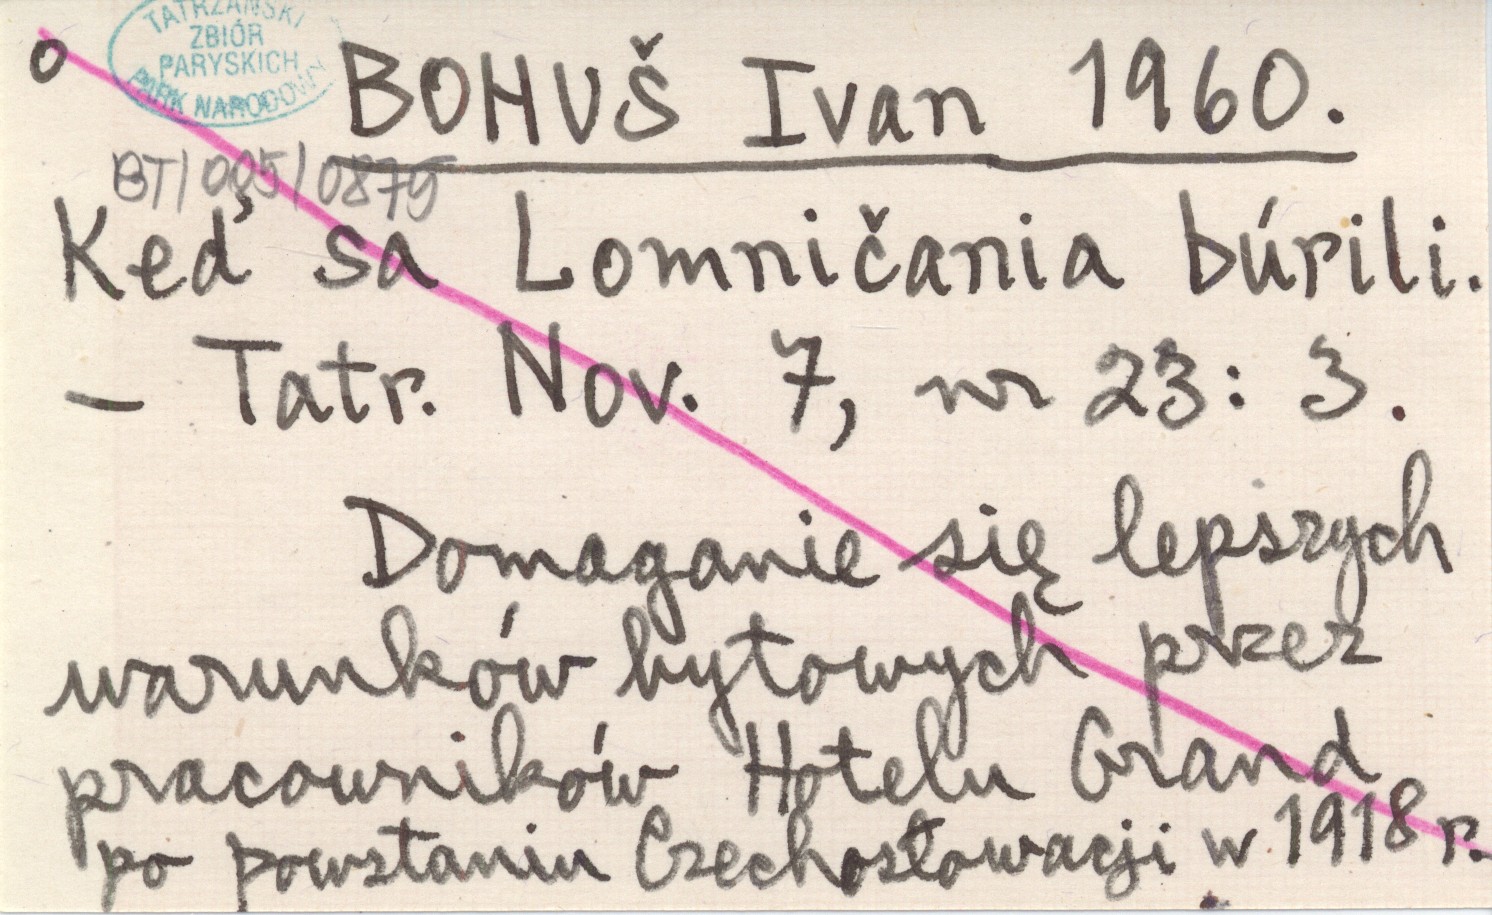 TATRZAŃSKI
ZBIÓR
PARYSKICH
PARK NARODOWY
o
BOHUŠ Ivan 1960.
BT/005/0879
Keď sa Lomničania búrili.
– Tatr. Nov. 7, nr 23: 3.
Domaganie się lepszych
warunków bytowych przez
pracowników Hotelu Grand
po powstaniu Czechosłowacji w 1918 r.